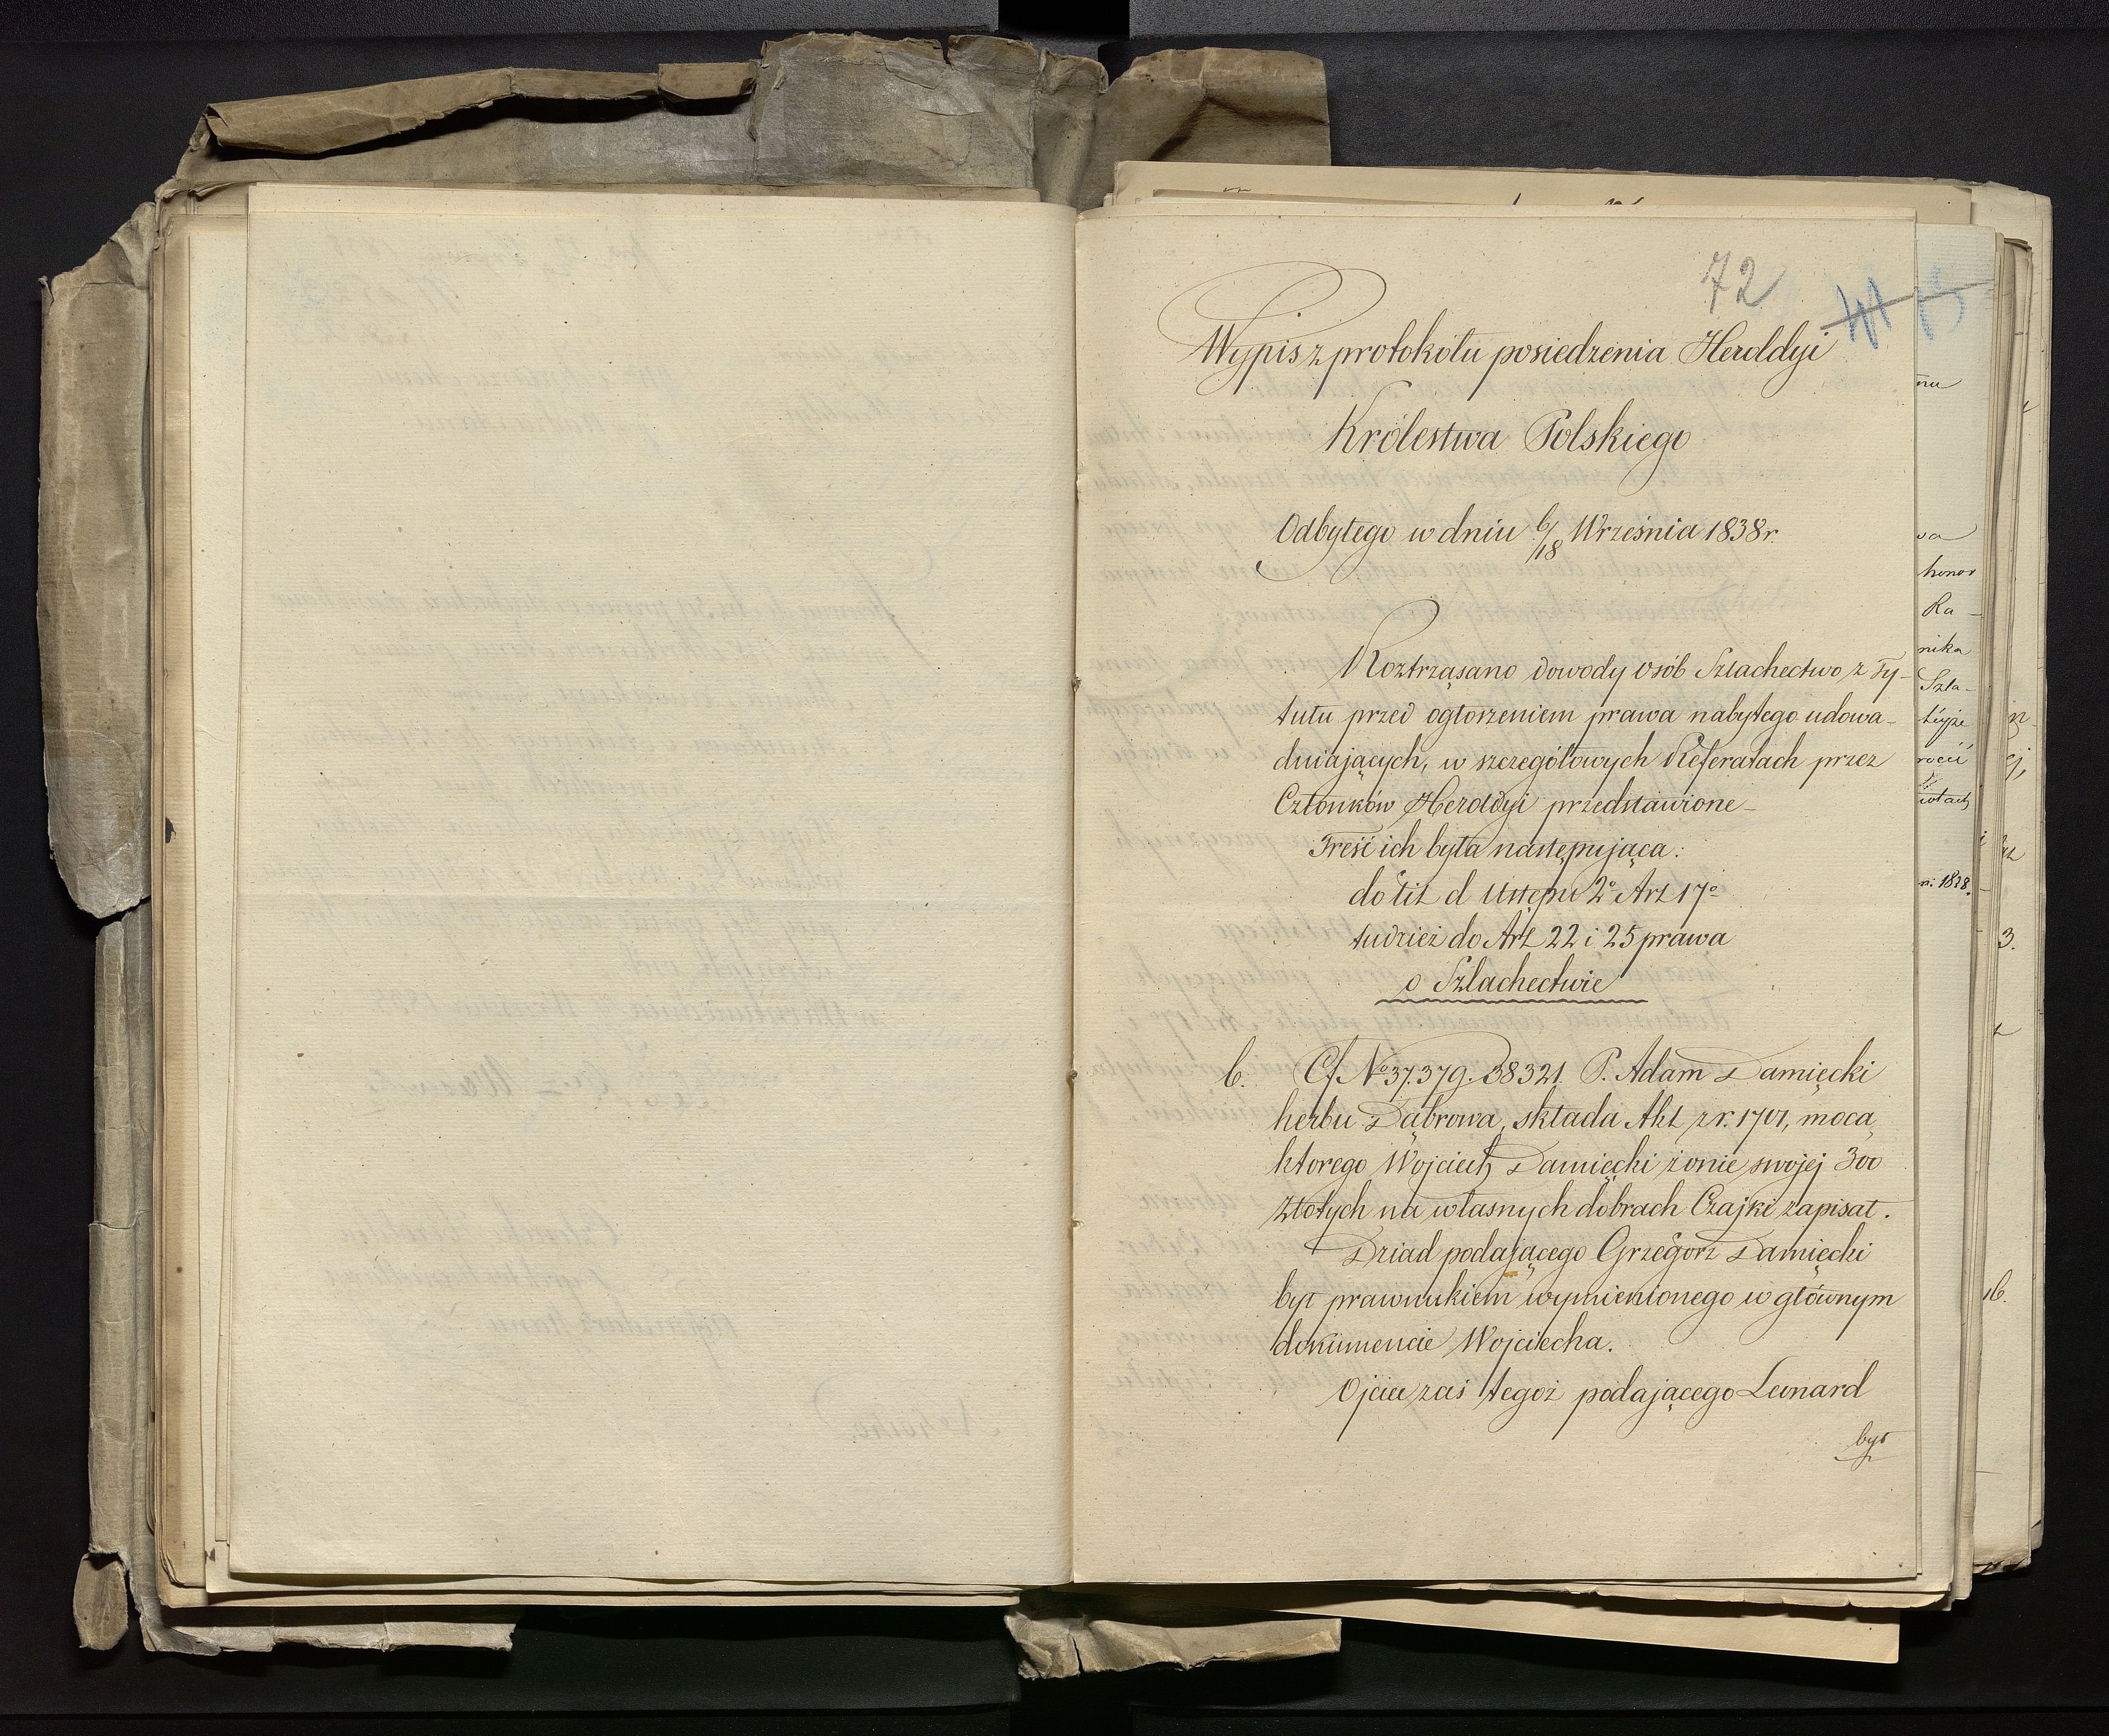 72
Wypis z protokołu posiedzenia Heroldyi
Królestwa Polskiego
Odbytego w dniu 6/18 Września 1838 r.
Roztrząsano dowody osób Szlachectwo z Ty-
tułu przed ogłoszeniem prawa nabytego udowa-
dniających, w szczegółowych Referatach przez
Członków Heroldyi przedstawione
Treść ich była następująca:
do lit d Ustępu 2º Art 17º
tudzież do Art 22 i 25 prawa
o Szlachectwie
6. Cf Nº 37.379. 38321. P. Adam Damięcki
herbu Dąbrowa, składa Akt z r. 1701, mocą
ktorego Wojciech Damięcki żonie swojej 300
złotych na własnych dobrach Czajki zapisał.
Dziad podającego Grzegorz Damięcki
był prawnukiem wymienionego w głównym
dokumencie Wojciecha.
Ojciec zaś tegoż podającego Leonard
był
honor
Ra-
nika
Szla-
tejże
1838.
3.
16.